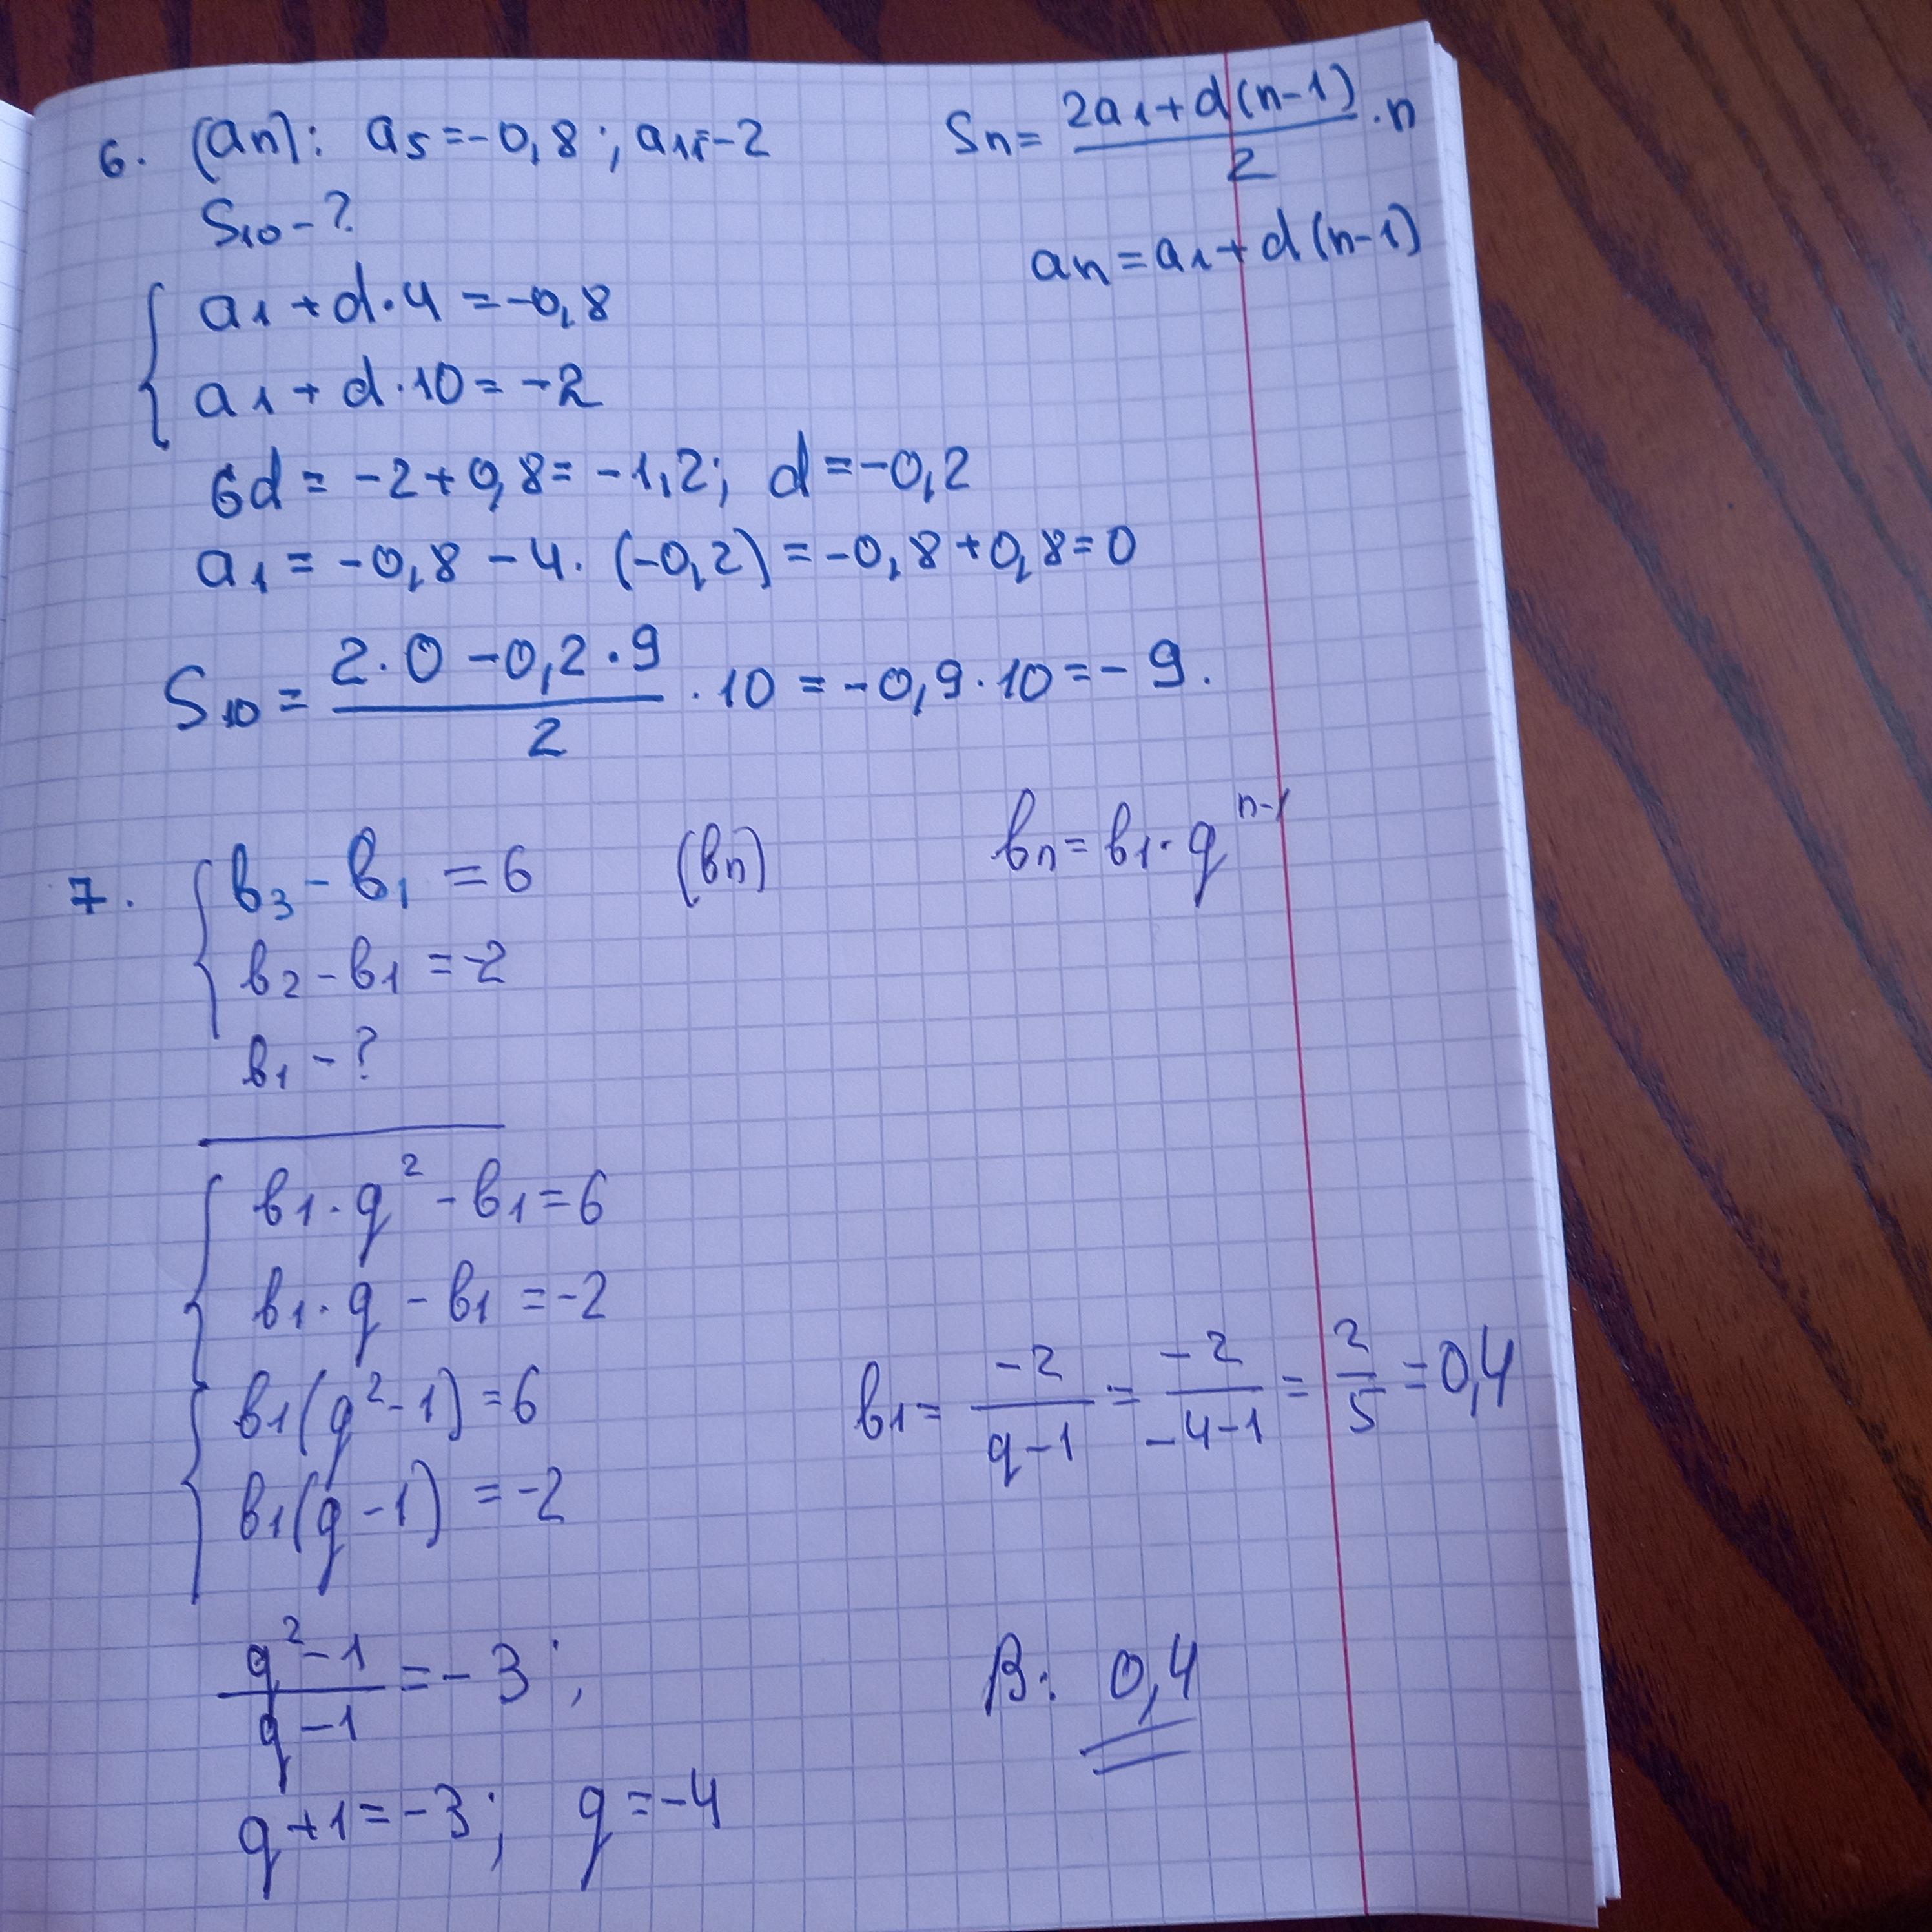 6. (an): a5 = -0,8; a11=-2
Sn = (2a1+d(n-1))/2 · n
S10 - ?
an = a1 + d(n-1)
{ a1 + d·4 = -0,8
a1 + d·10 = -2
6d = -2+0,8 = -1,2; d = -0,2
a1 = -0,8 - 4·(-0,2) = -0,8+0,8=0
S10 = (2·0 - 0,2·9)/2 · 10 = -0,9·10 = -9.
7. { в3 - в1 = 6 (вn) вn = в1·q^(n-1)
в2 - в1 = -2
в1 - ?
{ в1·q² - в1 = 6
в1·q - в1 = -2
{ в1(q²-1) = 6
в1(q-1) = -2
в1 = -2/(q-1) = -2/(-4-1) = 2/5 = 0,4
(q²-1)/(q-1) = -3;
В: 0,4
q+1 = -3; q = -4